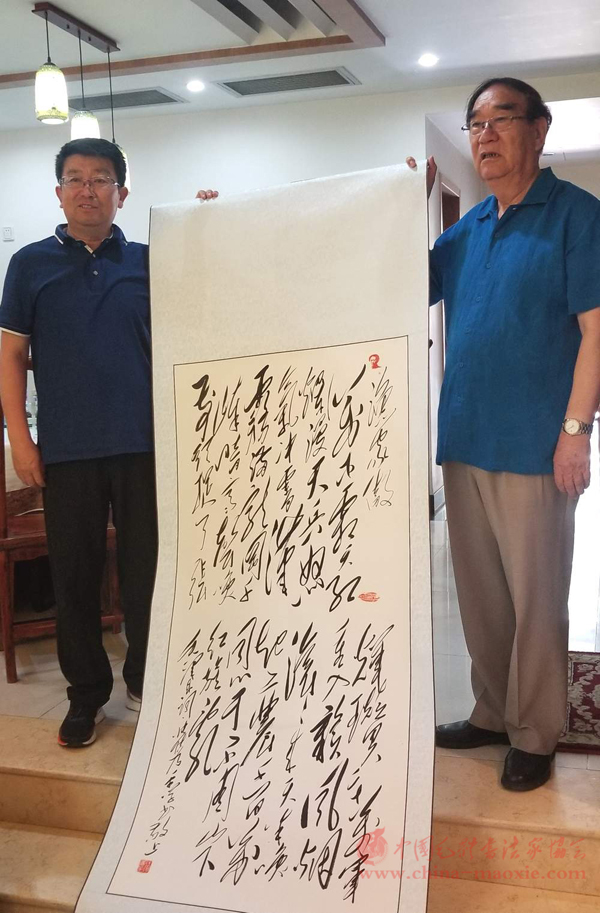 渔家傲
万木霜天红
烂漫天兵怒
气冲霄汉
雾满龙冈千
嶂暗齐声唤
前头捉了张
辉瓒二十万军
重入赣风烟
滚滚来天半唤
起工农千百万
同心干不周山下
红旗乱
毛泽东词
中国毛体书法家协会
www.china-maoxie.com